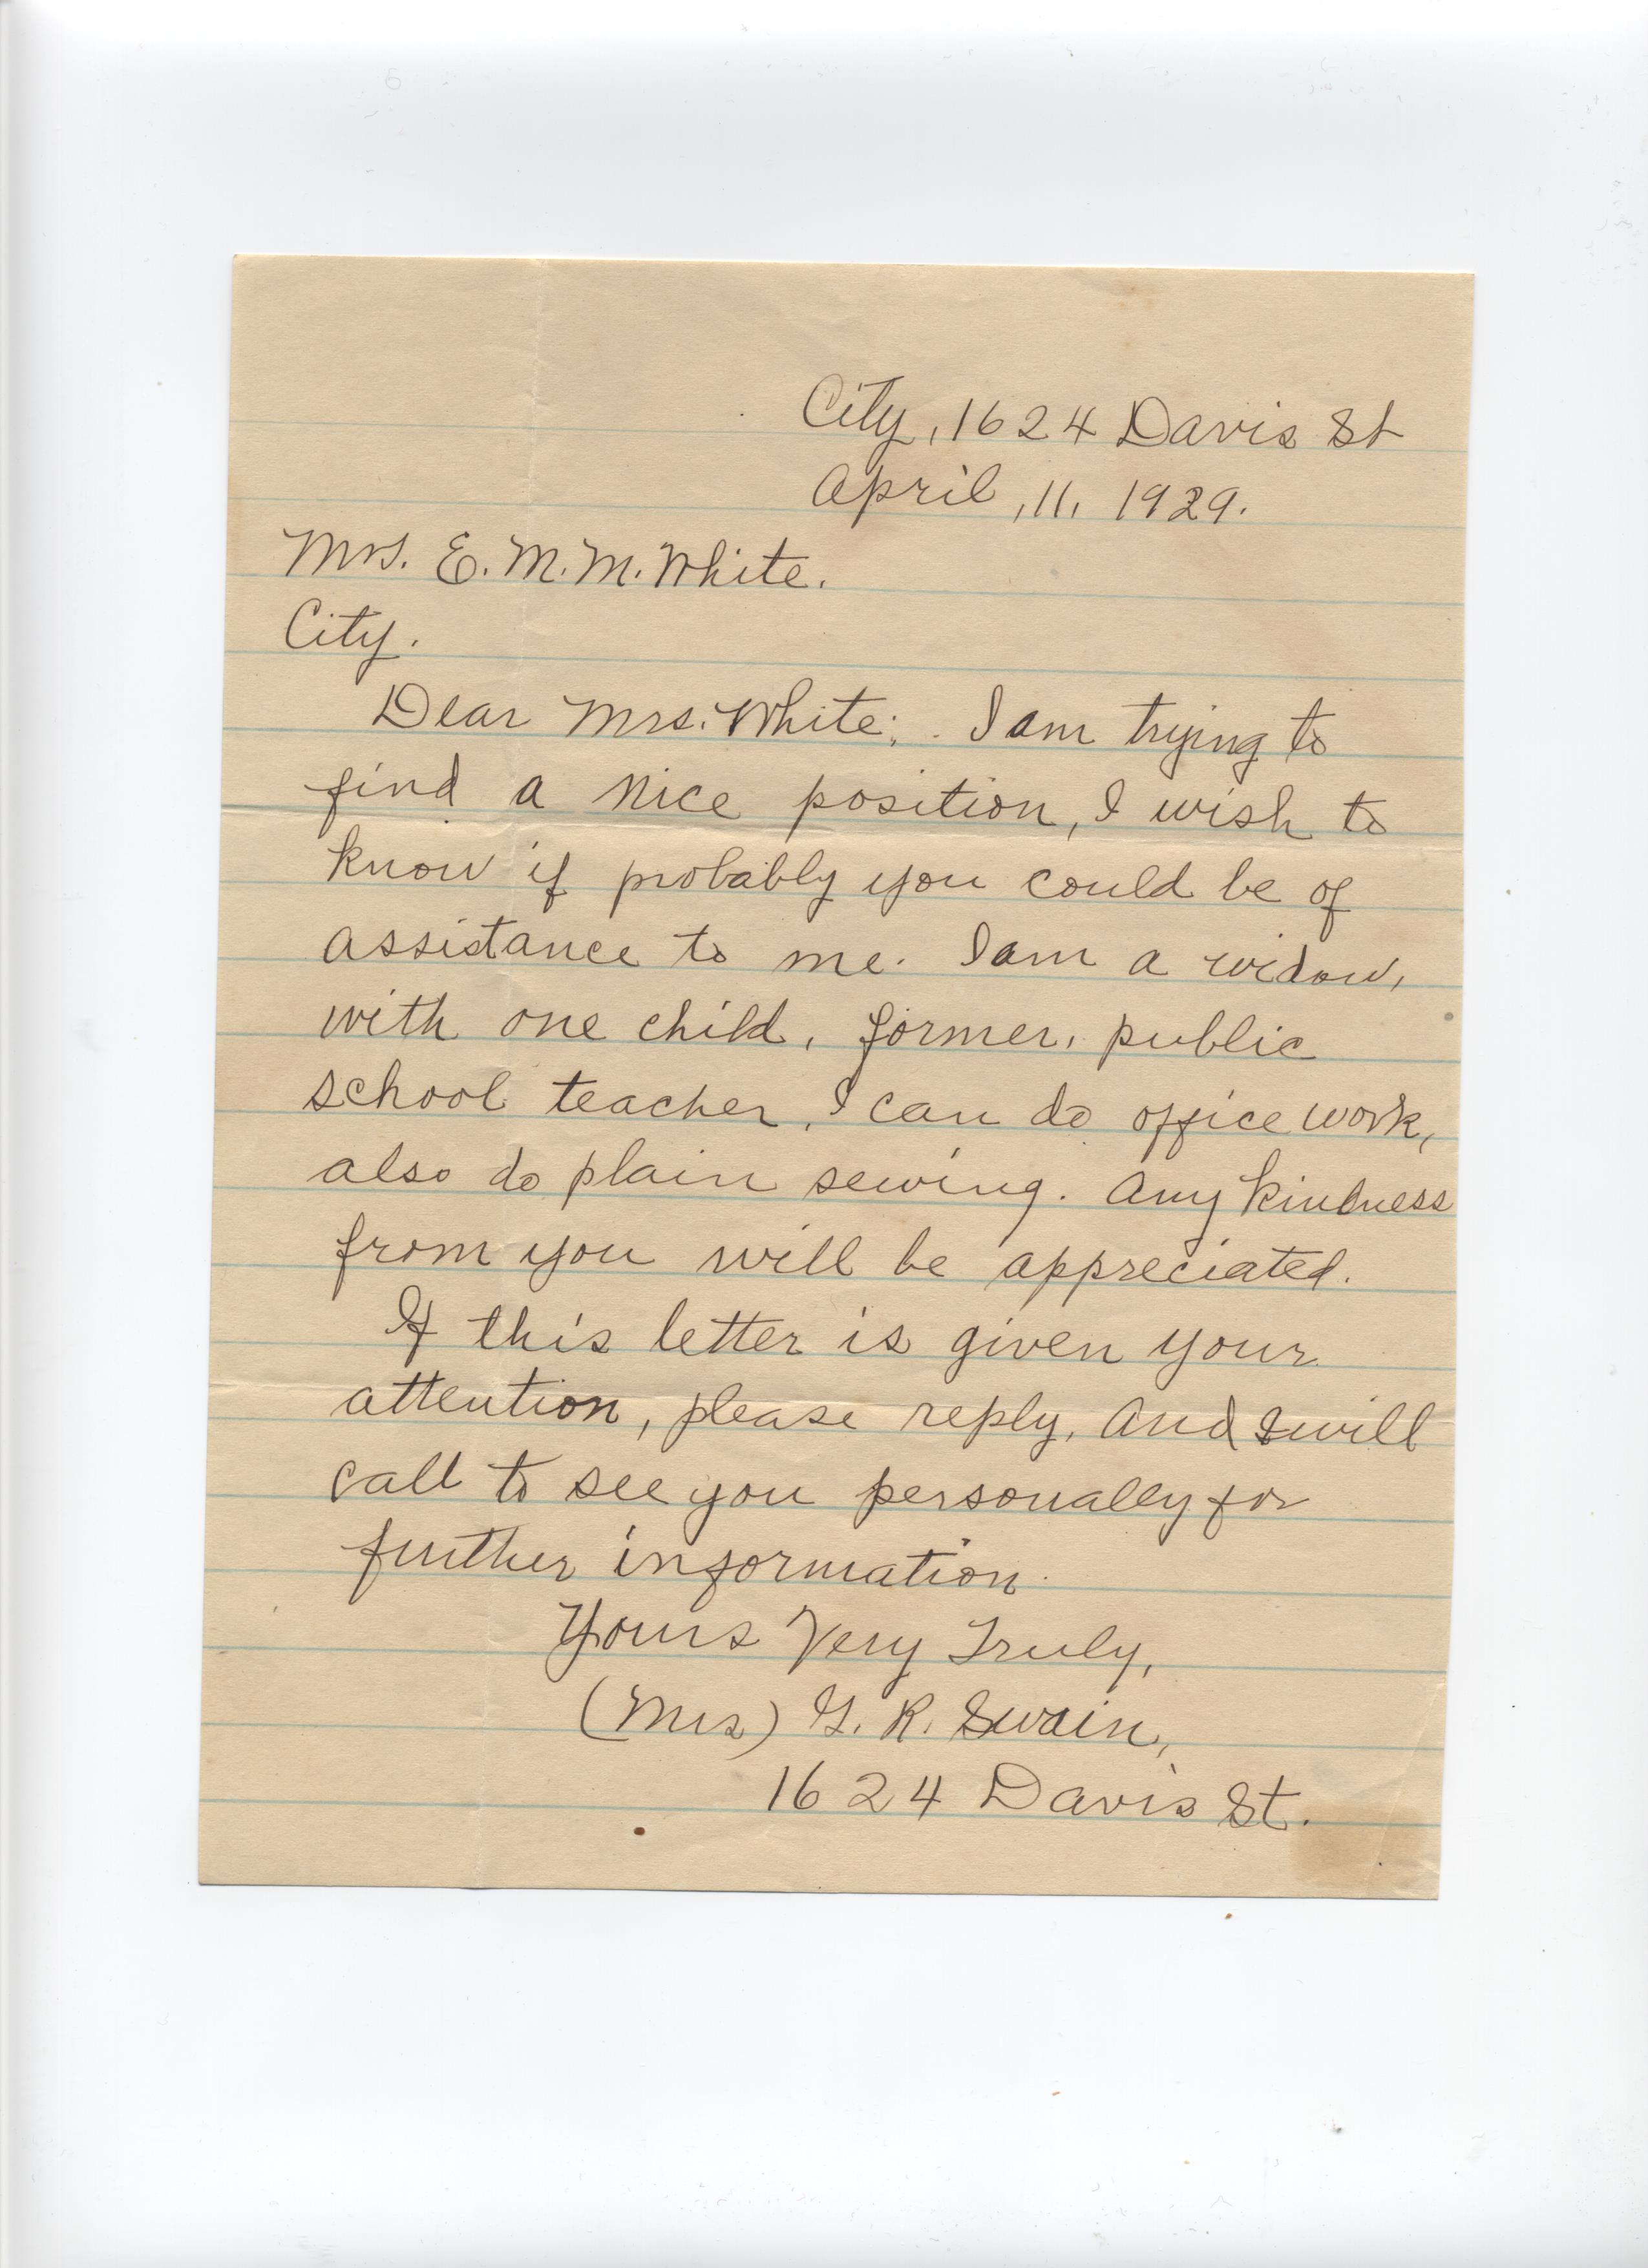 City, 1624 Davis St
April, 11, 1929.
Mrs. E. M. M. White.
City.
Dear Mrs. White; . I am trying to
find a nice position, I wish to
know if probably you could be of
assistance to me. I am a widow,
with one child, former, public
school teacher, I can do office work,
also do plain sewing. Any kindness
from you will be appreciated.
If this letter is given your
attention, please reply, And I will
call to see you personally for
further information.
Yours Very Truly,
(Mrs) G. R. Swain,
1624 Davis St.